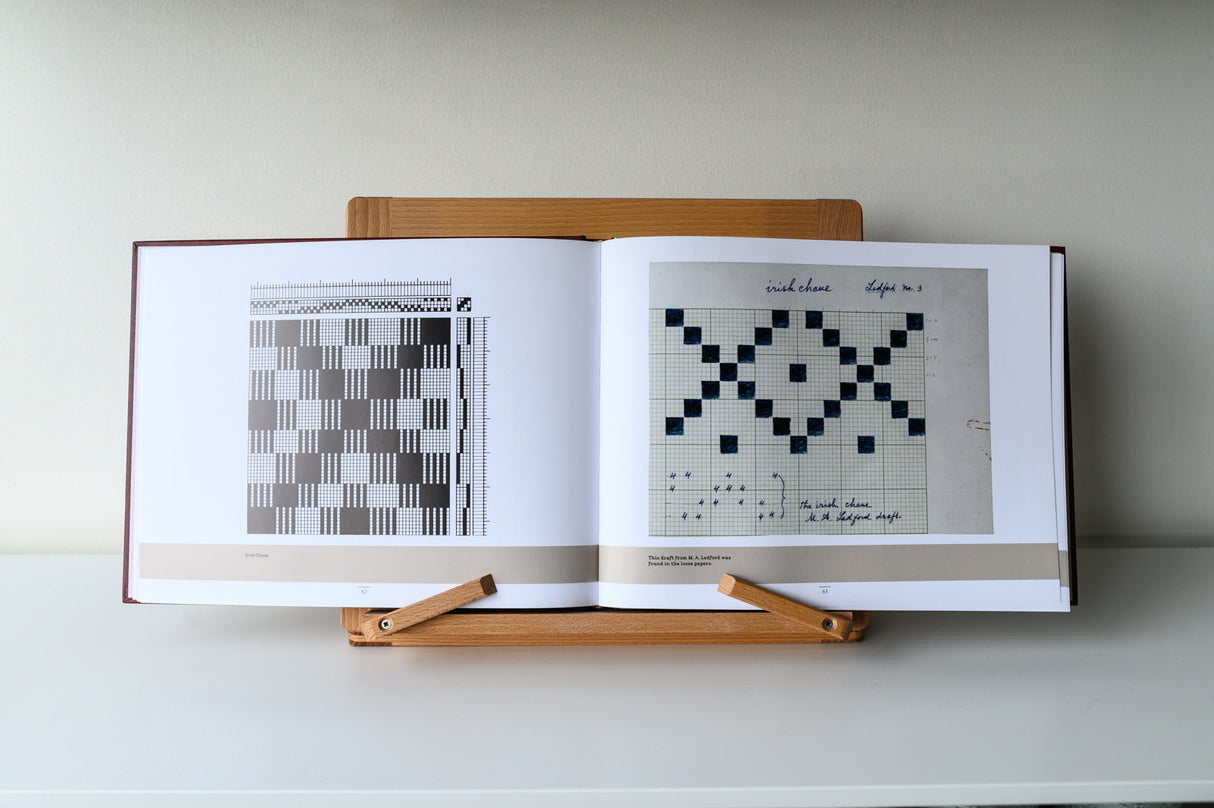 Irish Chane.
62
irish chane
Ledford No. 3
4 4 4 4
4 4 4 4
4 4 4 4
4 4 4 4
The irish chane
M. A. Ledford draft.
This draft from M. A. Ledford was
found in the loose papers.
63